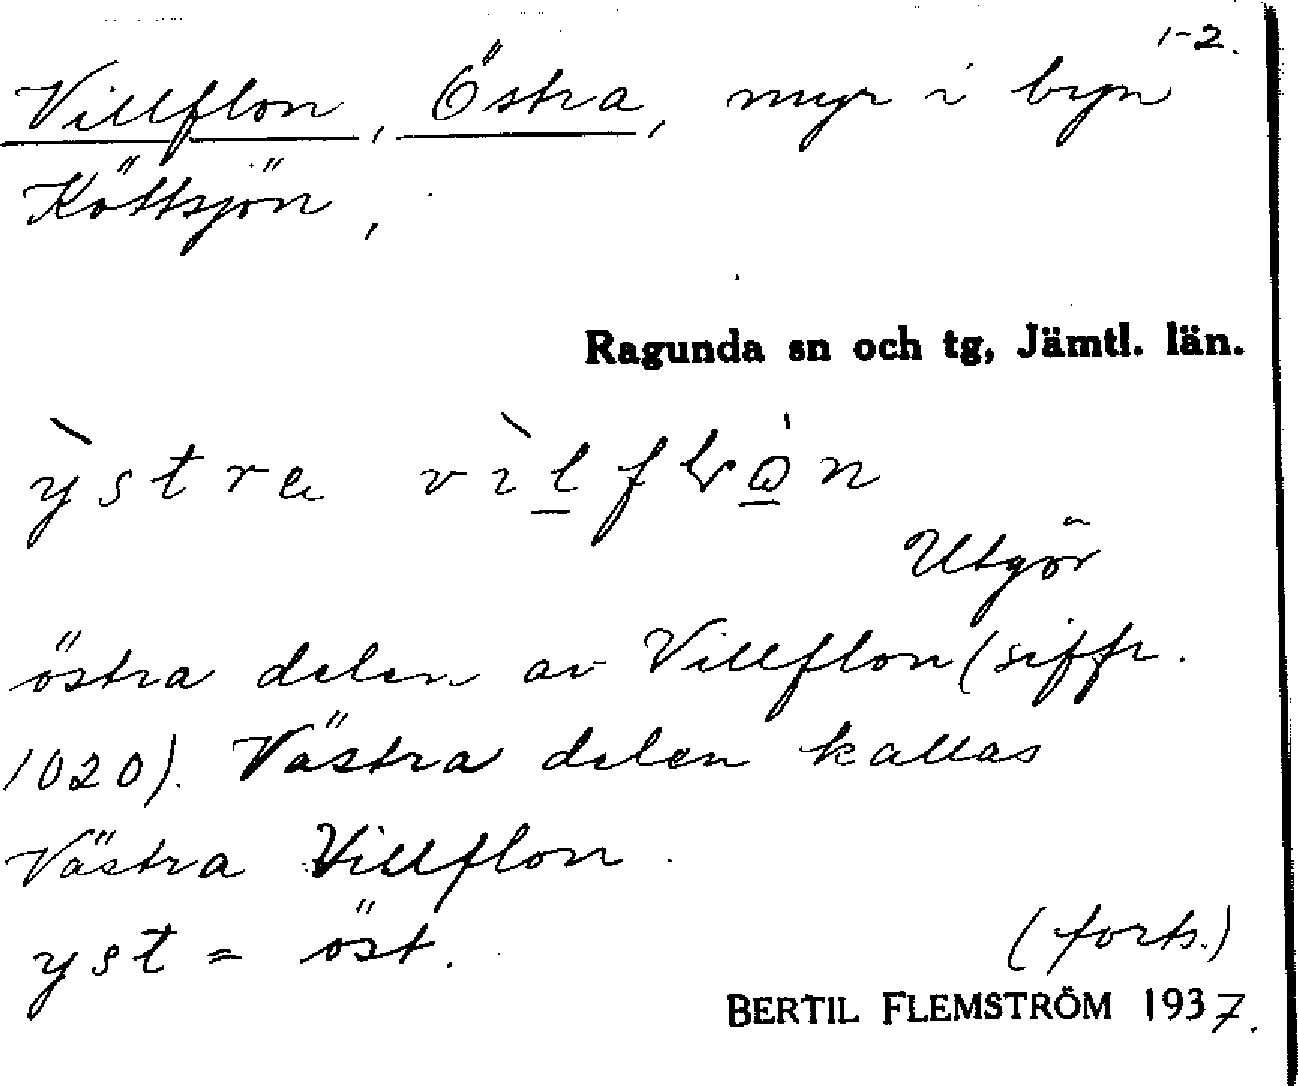 1-2.
Villflon, Östra, myr i byn
Köttsjön,
Ragunda sn och tg, Jämtl. län.
ỳstra vìlflo̊n
Utgör
östra delen av Villflon (siffr.
1020). Västra delen kallas
Västra Villflon.
yst = öst.
(forts.)
BERTIL FLEMSTRÖM 1937.